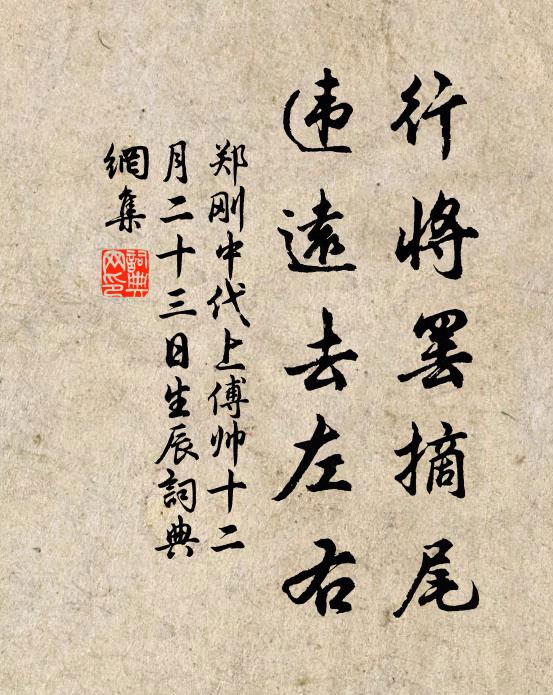 行将罢摘尾
违远去左右
郑刚中代上傅帅十二
月二十三日生辰词典
網集
詞典網印